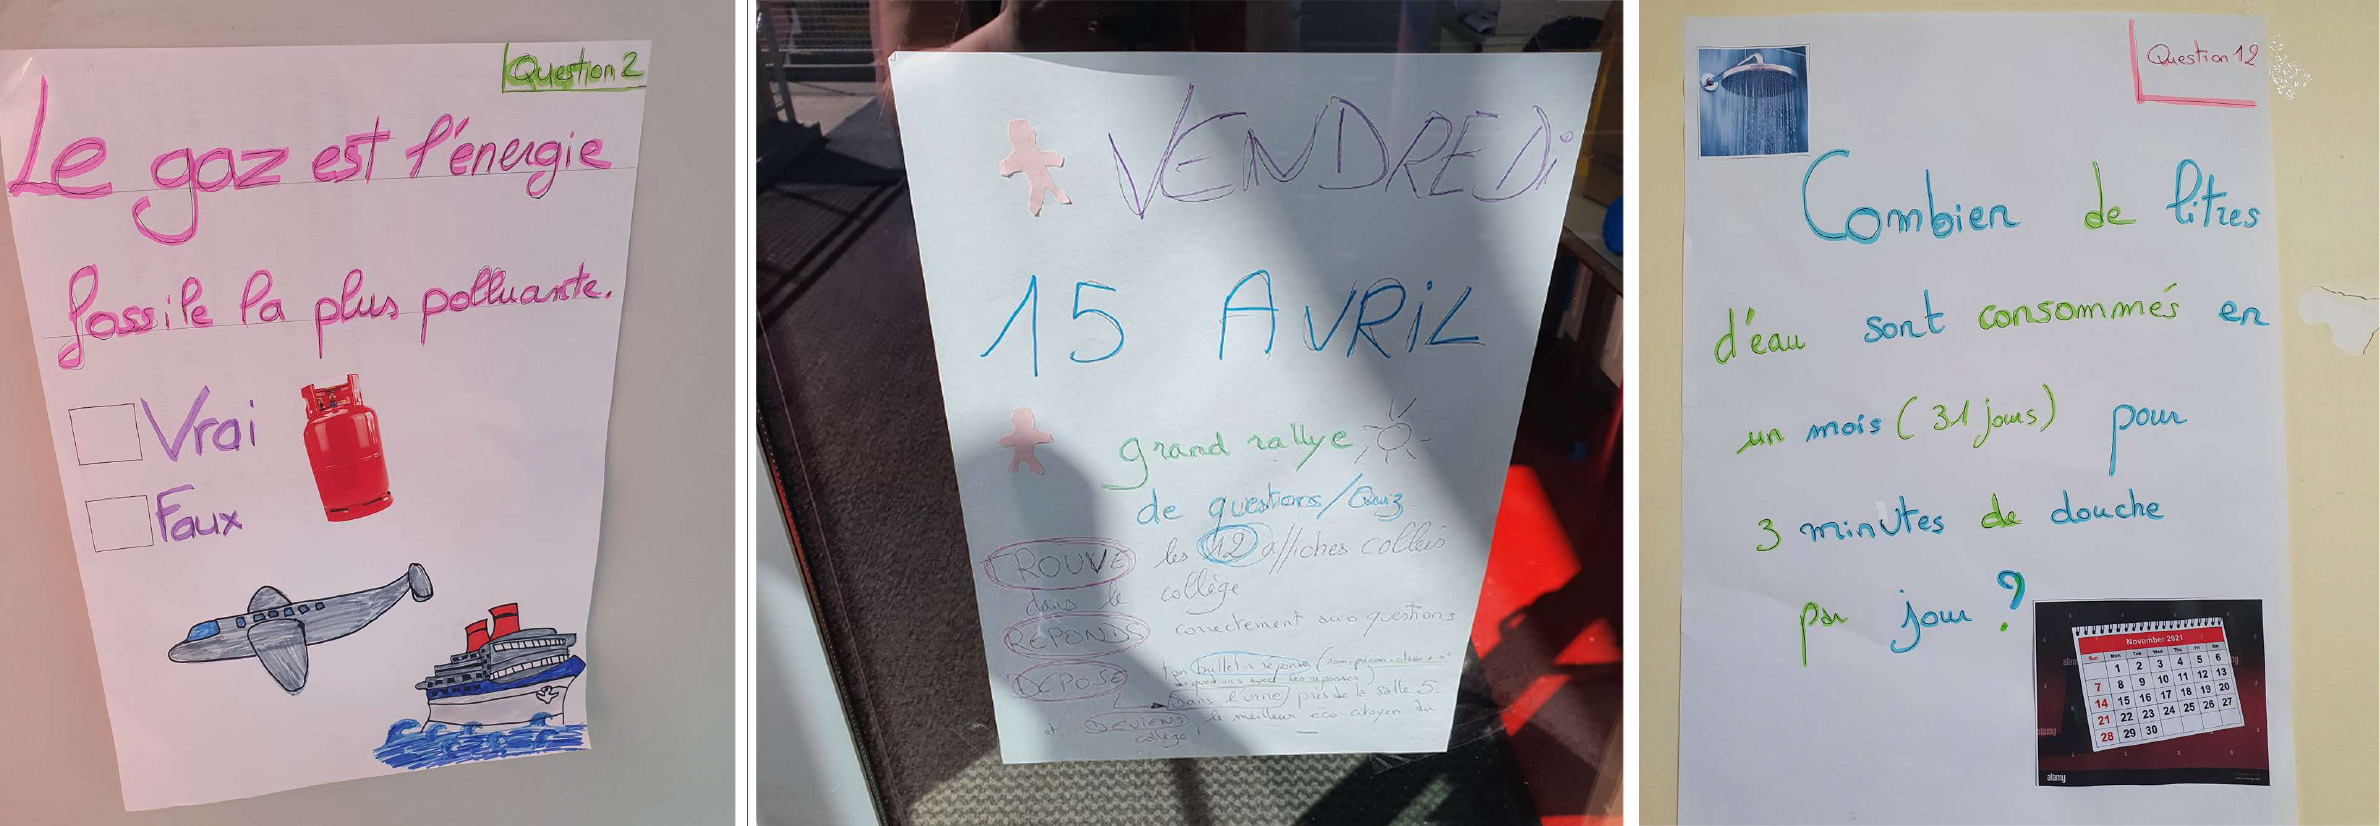 Question 2
Le gaz est l'énergie
fossile la plus polluante.
Vrai
Faux
VENDREDi
15 AVRiL
grand rallye
de questions/Quiz
TROUVE les 12 affiches collées
dans le collège
REPONDS correctement aux questions
DEPOSE ton bulletin réponse (nom-prénom-classe + n°
de questions avec les réponses)
dans l'urne près de la salle 5
et DEVIENS le meilleur éco-citoyen du
collège !
Question 12
Combien de litres
d'eau sont consommés en
un mois (31 jours) pour
3 minutes de douche
par jour ?
November 2021
Sun Mon Tue Wed Thu Fri Sat
1 2 3 4 5 6
7 8 9 10 11 12 13
14 15 16 17 18 19 20
21 22 23 24 25 26 27
28 29 30
alamy